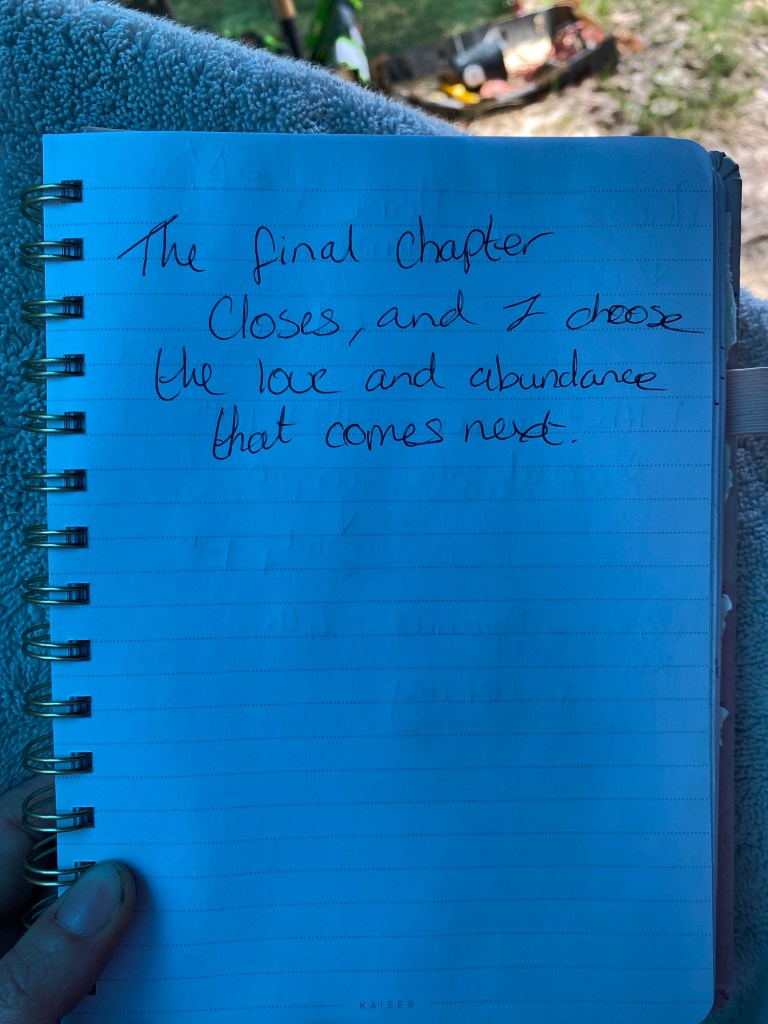 The final Chapter
Closes, and I choose
the love and abundance
that comes next.
KAISER